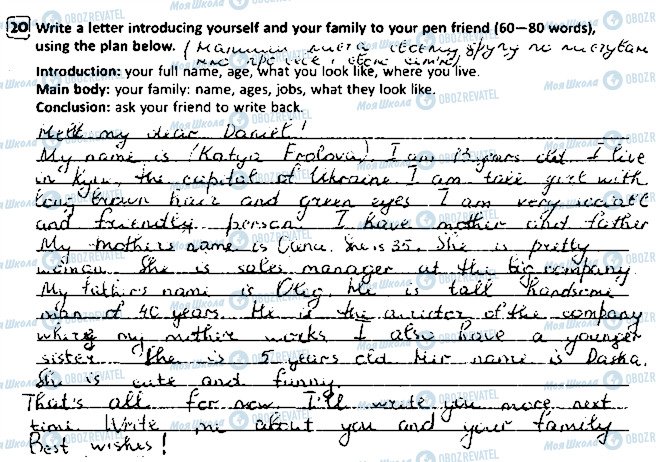 20 Write a letter introducing yourself and your family to your pen friend (60—80 words),
using the plan below. (Напиши листа своєму другу по листуванню про себе і свою сім'ю)
Introduction: your full name, age, what you look like, where you live.
Main body: your family: name, ages, jobs, what they look like.
Conclusion: ask your friend to write back.
my dear Daniel!
My name is (Katya Frolova) I am 13 years old. I live
in Kyiv, the capital of Ukraine I am tall girl with
long brown hair and green eyes I am very sociable
and friendly person. I have mother and father
My mothers name is Olena. She is 35. She is pretty
woman. She is sales manager at the big company.
My father's name is Oleg. He is tall handsome
man of 40 years. He is the director of the company
where my mother works. I also have a younger
sister. She is 5 years old Her name is Dasha.
She is cute and funny.
That's all for now. I'll write you more next
time. Write me about you and your family
Best wishes!
Моя Школа OBOZREVATEL